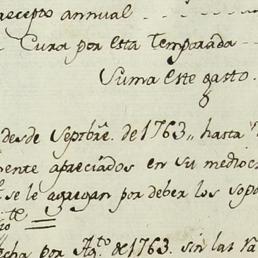 recepto annual
Cura por esta Temporada
Suma este gasto.
desde Septbre. de 1763,, hasta
mente apreciados en su medioc
se le agregan por deber los sopo
echa por Agto. de 1763. sin las va